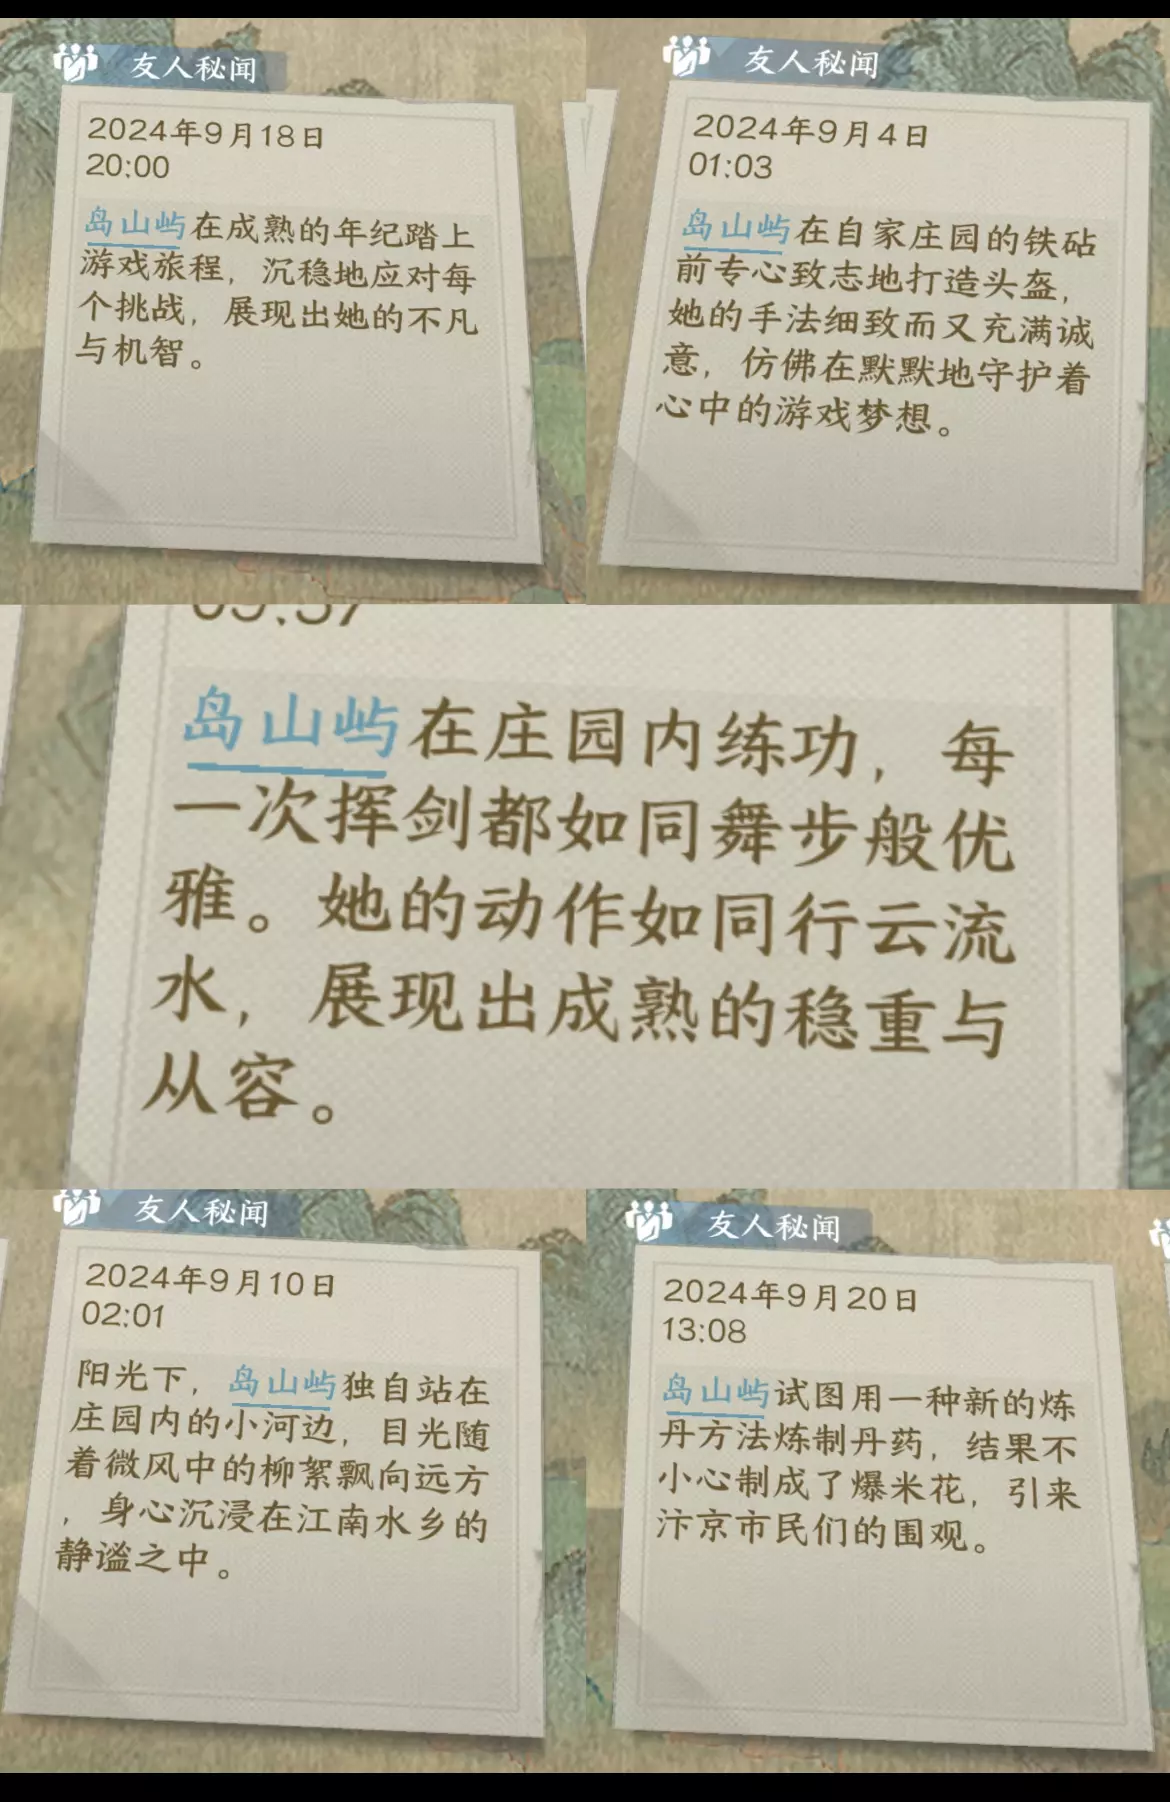 友人秘闻
2024年9月18日
20:00
岛山屿在成熟的年纪踏上
游戏旅程，沉稳地应对每
个挑战，展现出她的不凡
与机智。
友人秘闻
2024年9月4日
01:03
岛山屿在自家庄园的铁砧
前专心致志地打造头盔，
她的手法细致而又充满诚
意，仿佛在默默地守护着
心中的游戏梦想。
岛山屿在庄园内练功，每
一次挥剑都如同舞步般优
雅。她的动作如同行云流
水，展现出成熟的稳重与
从容。
友人秘闻
2024年9月10日
02:01
阳光下，岛山屿独自站在
庄园内的小河边，目光随
着微风中的柳絮飘向远方
，身心沉浸在江南水乡的
静谧之中。
友人秘闻
2024年9月20日
13:08
岛山屿试图用一种新的炼
丹方法炼制丹药，结果不
小心制成了爆米花，引来
汴京市民们的围观。